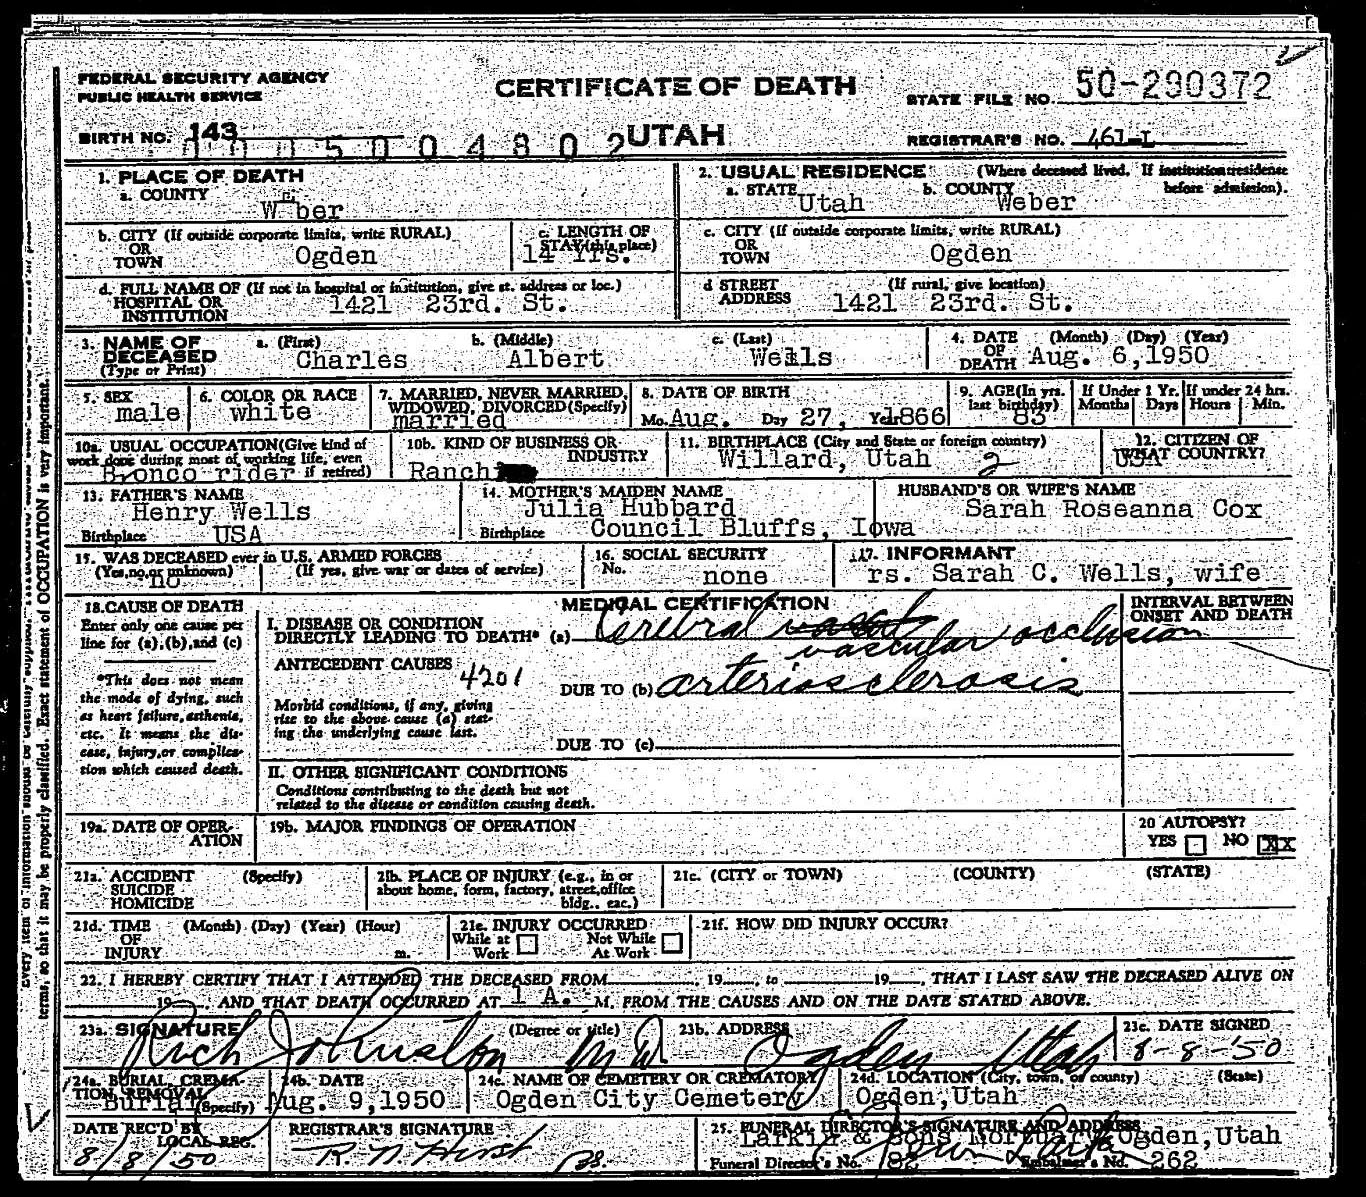 FEDERAL SECURITY AGENCY
PUBLIC HEALTH SERVICE
CERTIFICATE OF DEATH
STATE FILE NO. 50-290372
BIRTH NO. 143
0005004802
UTAH
REGISTRAR'S NO. 461-L
1. PLACE OF DEATH
a. COUNTY
Weber
2. USUAL RESIDENCE (Where deceased lived. If institution: residence before admission).
a. STATE Utah b. COUNTY Weber
b. CITY (If outside corporate limits, write RURAL)
OR
TOWN Ogden
c. LENGTH OF
STAY (this place)
14 Yrs.
c. CITY (If outside corporate limits, write RURAL)
OR
TOWN Ogden
d. FULL NAME OF (If not in hospital or institution, give st. address or loc.)
HOSPITAL OR
INSTITUTION 1421 23rd. St.
d STREET (If rural, give location)
ADDRESS 1421 23rd. St.
3. NAME OF
DECEASED
(Type or Print)
a. (First) b. (Middle) c. (Last)
Charles Albert Wells
4. DATE (Month) (Day) (Year)
OF
DEATH Aug. 6,1950
5. SEX
male
6. COLOR OR RACE
white
7. MARRIED, NEVER MARRIED,
WIDOWED, DIVORCED (Specify)
married
8. DATE OF BIRTH
Mo. Aug. Day 27, Year 1866
9. AGE (In yrs.
last birthday)
83
If Under 1 Yr.
Months Days
If under 24 hrs.
Hours Min.
10a. USUAL OCCUPATION (Give kind of
work done during most of working life, even
if retired)
Bronco rider
10b. KIND OF BUSINESS OR
INDUSTRY
Ranch
11. BIRTHPLACE (City and State or foreign country)
Willard, Utah 2
12. CITIZEN OF
WHAT COUNTRY?
USA
13. FATHER'S NAME
Henry Wells
Birthplace USA
14. MOTHER'S MAIDEN NAME
Julia Hubbard
Birthplace Council Bluffs, Iowa
HUSBAND'S OR WIFE'S NAME
Sarah Roseanna Cox
15. WAS DECEASED ever in U.S. ARMED FORCES
(Yes, no, or unknown) (If yes, give war or dates of service)
no
16. SOCIAL SECURITY
No. none
17. INFORMANT
rs. Sarah C. Wells, wife
18. CAUSE OF DEATH
Enter only one cause per
line for (a), (b), and (c)
*This does not mean
the mode of dying, such
as heart failure, asthenia,
etc. It means the dis-
ease, injury, or complica-
tion which caused death.
MEDICAL CERTIFICATION
INTERVAL BETWEEN
ONSET AND DEATH
I. DISEASE OR CONDITION
DIRECTLY LEADING TO DEATH* (a) Cerebral
vascular occlusion
ANTECEDENT CAUSES
4201
DUE TO (b) arteriosclerosis
Morbid conditions, if any, giving
rise to the above cause (a) stat-
ing the underlying cause last.
DUE TO (c)
II. OTHER SIGNIFICANT CONDITIONS
Conditions contributing to the death but not
related to the disease or condition causing death.
19a. DATE OF OPER-
ATION
19b. MAJOR FINDINGS OF OPERATION
20 AUTOPSY?
YES NO XX
21a. ACCIDENT (Specify)
SUICIDE
HOMICIDE
21b. PLACE OF INJURY (e.g., in or
about home, form, factory, street, office
bldg., eac.)
21c. (CITY or TOWN) (COUNTY) (STATE)
21d. TIME (Month) (Day) (Year) (Hour)
OF
INJURY m.
21e. INJURY OCCURRED
While at Work Not While At Work
21f. HOW DID INJURY OCCUR?
22. I HEREBY CERTIFY THAT I ATTENDED THE DECEASED FROM 19 , to 19 , THAT I LAST SAW THE DECEASED ALIVE ON
19 , AND THAT DEATH OCCURRED AT 1 A. M. FROM THE CAUSES AND ON THE DATE STATED ABOVE.
23a. SIGNATURE (Degree or title)
Rich Johnston MD
23b. ADDRESS
Ogden Utah
23c. DATE SIGNED
8-8-'50
24a. BURIAL, CREMA-
TION, REMOVAL
(Specify)
Burial
24b. DATE
Aug. 9,1950
24c. NAME OF CEMETERY OR CREMATORY
Ogden City Cemetery
24d. LOCATION (City, town, or county) (State)
Ogden,Utah
DATE REC'D BY
LOCAL REG.
8/8/50
REGISTRAR'S SIGNATURE
R N Hirst
25. FUNERAL DIRECTOR'S SIGNATURE AND ADDRESS
Larkin & Sons Mortuary Ogden,Utah
Funeral Director's No. 82 Embalmer's No. 262
terms, so that it may be properly classified. Exact statement of OCCUPATION is very important.